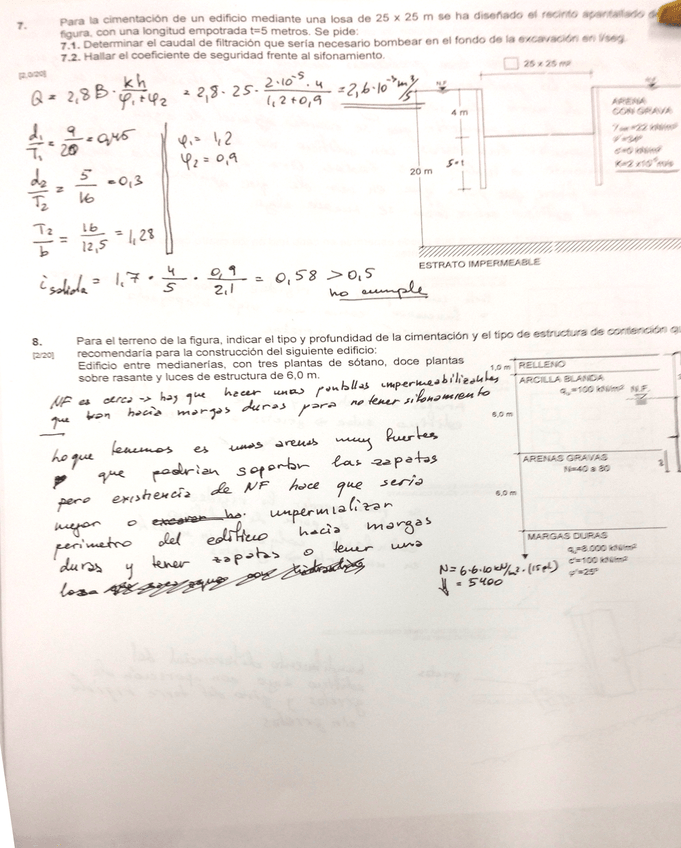 7. Para la cimentación de un edificio mediante una losa de 25 x 25 m se ha diseñado el recinto apantallado de
figura, con una longitud empotrada t=5 metros. Se pide:
7.1. Determinar el caudal de filtración que sería necesario bombear en el fondo de la excavación en l/seg.
7.2. Hallar el coeficiente de seguridad frente al sifonamiento.
[2,0/20]
Q = 2,8 B · kh / φ1+φ2 = 2,8 · 25 · 2·10⁻⁵ · 4 / 1,2+0,9 = 2,6·10⁻³ m³/s
d1/T1 = 9/20 = 0,45
d2/T2 = 5/16 = 0,3
T2/b = 16/12,5 = 1,28
φ1 = 1,2
φ2 = 0,9
i salida = 1,7 · 4/5 · 0,9/2,1 = 0,58 > 0,5
no cumple
25 x 25 m²
N.F.
4 m
20 m
5=t
ARENA
CON GRAVA
ESTRATO IMPERMEABLE
8. Para el terreno de la figura, indicar el tipo y profundidad de la cimentación y el tipo de estructura de contención qu
[2/20] recomendaría para la construcción del siguiente edificio:
Edificio entre medianerías, con tres plantas de sótano, doce plantas
sobre rasante y luces de estructura de 6,0 m.
NF es cerca → hay que hacer unas pantallas impermeabilizantes
que van hacia margas duras para no tener sifonamiento
Lo que tenemos es unas arenas muy fuertes
que podrían soportar las zapatas
pero existencia de NF hace que sería
mejor o impermializar
perimetro del edifico hacia margas
duras y tener zapatas o tener una
losa
1,0 m RELLENO
ARCILLA BLANDA
qu=100 kN/m² N.F.
6,0 m
ARENAS GRAVAS
N=40 a 80
6,0 m
MARGAS DURAS
qu=8.000 kN/m²
c'=100 kN/m²
φ'=25°
N = 6·6·10 kN/m² · (15 pl)
= 5400